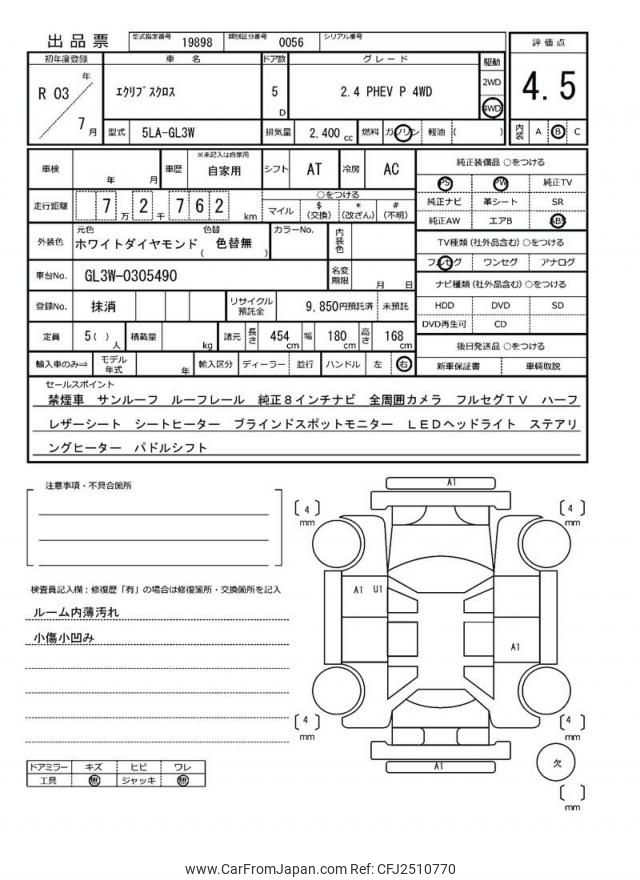 出品票
型式指定番号 19898 類別区分番号 0056 シリアル番号
初年度登録 車 名 ドア数 グレード 駆動
評価点
R 03 年 7 月
ｴｸﾘﾌﾟｽｸﾛｽ
5 D
2.4 PHEV P 4WD
2WD
4WD
4.5
型式 5LA-GL3W 排気量 2,400 cc 燃料 ガソリン 軽油 ( )
内装 A B C
車検 年 月 車歴 ※未記入は自家用 自家用 シフト AT 冷房 AC
純正装備品 ○をつける
PS PW 純正TV
純正ナビ 革シート SR
純正AW エアB ABS
走行距離 7 万 2 千 7 6 2 km
○をつける
マイル $ (交換) * (改ざん) # (不明)
外装色 元色 ホワイトダイヤモンド 色替 ( 色替無 ) カラーNo. 内装色
TV種類 (社外品含む) ○をつける
フルセグ ワンセグ アナログ
車台No. GL3W-0305490 名変期限 月 日
ナビ種類 (社外品含む) ○をつける
HDD DVD SD
DVD再生可 CD
登録No. 抹消 リサイクル預託金 9,850円預託済 未預託
定員 5( ) 人 積載量 kg 諸元 長さ 454 cm 幅 180 cm 高さ 168 cm
後日発送品 ○をつける
新車保証書 車輌取説
輸入車のみ⇒ モデル年式 年 輸入区分 ディーラー 並行 ハンドル 左 右
セールスポイント
禁煙車 サンルーフ ルーフレール 純正８インチナビ 全周囲カメラ フルセグＴＶ ハーフ
レザーシート シートヒーター ブラインドスポットモニター ＬＥＤヘッドライト ステアリ
ングヒーター パドルシフト
注意事項・不具合箇所
検査員記入欄：修復歴「有」の場合は修復箇所・交換箇所を記入
ルーム内薄汚れ
小傷小凹み
ドアミラー キズ ヒビ ワレ
工具 無 ジャッキ 無
A1
4 mm
4 mm
A1 U1
A1
4 mm
4 mm
A1
欠
mm
www.CarFromJapan.com Ref: CFJ2510770